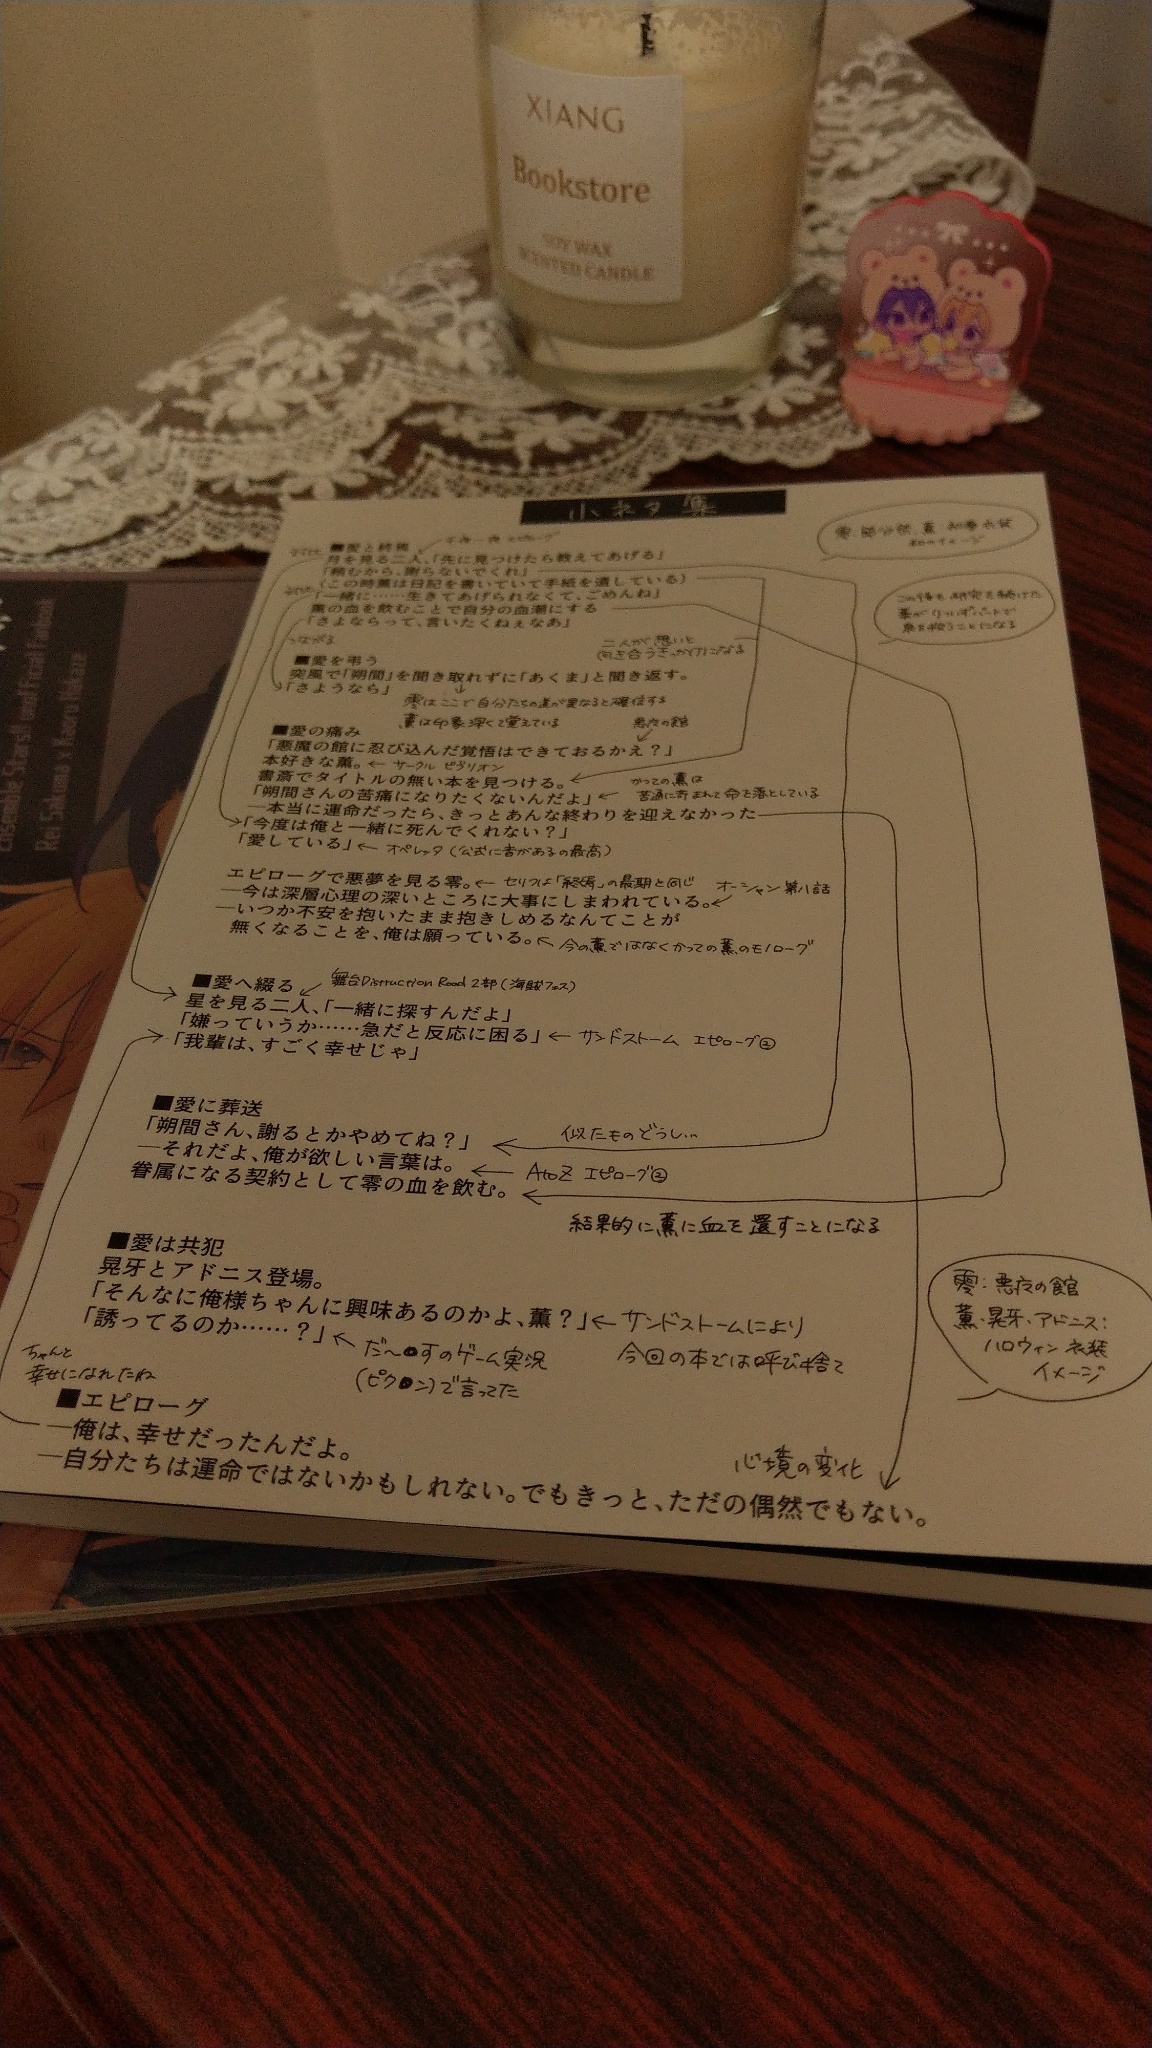 XIANG
Bookstore
SOY WAX
SCENTED CANDLE
Ensemble Stars!! unofficial Fanbook
Rei Sakuma × Kaoru Hakaze
小ネタ集
■愛と終焉
月を見る二人、「先に見つけたら教えてあげる」
「頼むから、謝らないでくれ」
(この時薫は日記を書いていて手紙を遺している)
「一緒に……生きてあげられなくて、ごめんね」
薫の血を飲むことで自分の血潮にする
「さよならって、言いたくねぇなあ」
つながる
二人が想いと
向き合うきっかけになる
■愛を弔う
突風で「朔間」を聞き取れずに「あくま」と聞き返す。
「さようなら」
零はここで自分たちの道が異なると確信する
薫は印象深くて覚えている
■愛の痛み
悪夜の館
「悪魔の館に忍び込んだ覚悟はできておるかえ？」
本好きな薫。← サークル ビブリオン
書斎でタイトルの無い本を見つける。
「朔間さんの苦痛になりたくないんだよ」←
かつての薫は
苦痛に苛まれて命を落としている
―本当に運命だったら、きっとあんな終わりを迎えなかった
「今度は俺と一緒に死んでくれない？」
「愛している」← オペレッタ(公式に音があるの最高)
エピローグで悪夢を見る零。← セリフは「終焉」の最期と同じ
オーシャン 第八話
―今は深層心理の深いところに大事にしまわれている。
―いつか不安を抱いたまま抱きしめるなんてことが
無くなることを、俺は願っている。← 今の薫ではなくかつての薫のモノローグ
■愛へ綴る
舞台Distruction Road 2部(海賊フェス)
星を見る二人、「一緒に探すんだよ」
「嫌っていうか……急だと反応に困る」← サンドストーム エピローグ②
「我輩は、すごく幸せじゃ」
■愛に葬送
「朔間さん、謝るとかやめてね？」
似たものどうし…
―それだよ、俺が欲しい言葉は。← AtoZ エピローグ②
眷属になる契約として零の血を飲む。
結果的に薫に血を還すことになる
■愛は共犯
晃牙とアドニス登場。
「そんなに俺様ちゃんに興味あるのかよ、薫？」← サンドストームにより
今回の本では呼び捨て
「誘ってるのか……？」← だ〜●すのゲーム実況
(ピク●ン)で言ってた
零：悪夜の館
薫・晃牙・アドニス：
ハロウィン衣装
イメージ
ちゃんと
幸せになれたね
■エピローグ
―俺は、幸せだったんだよ。
―自分たちは運命ではないかもしれない。でもきっと、ただの偶然でもない。
心境の変化